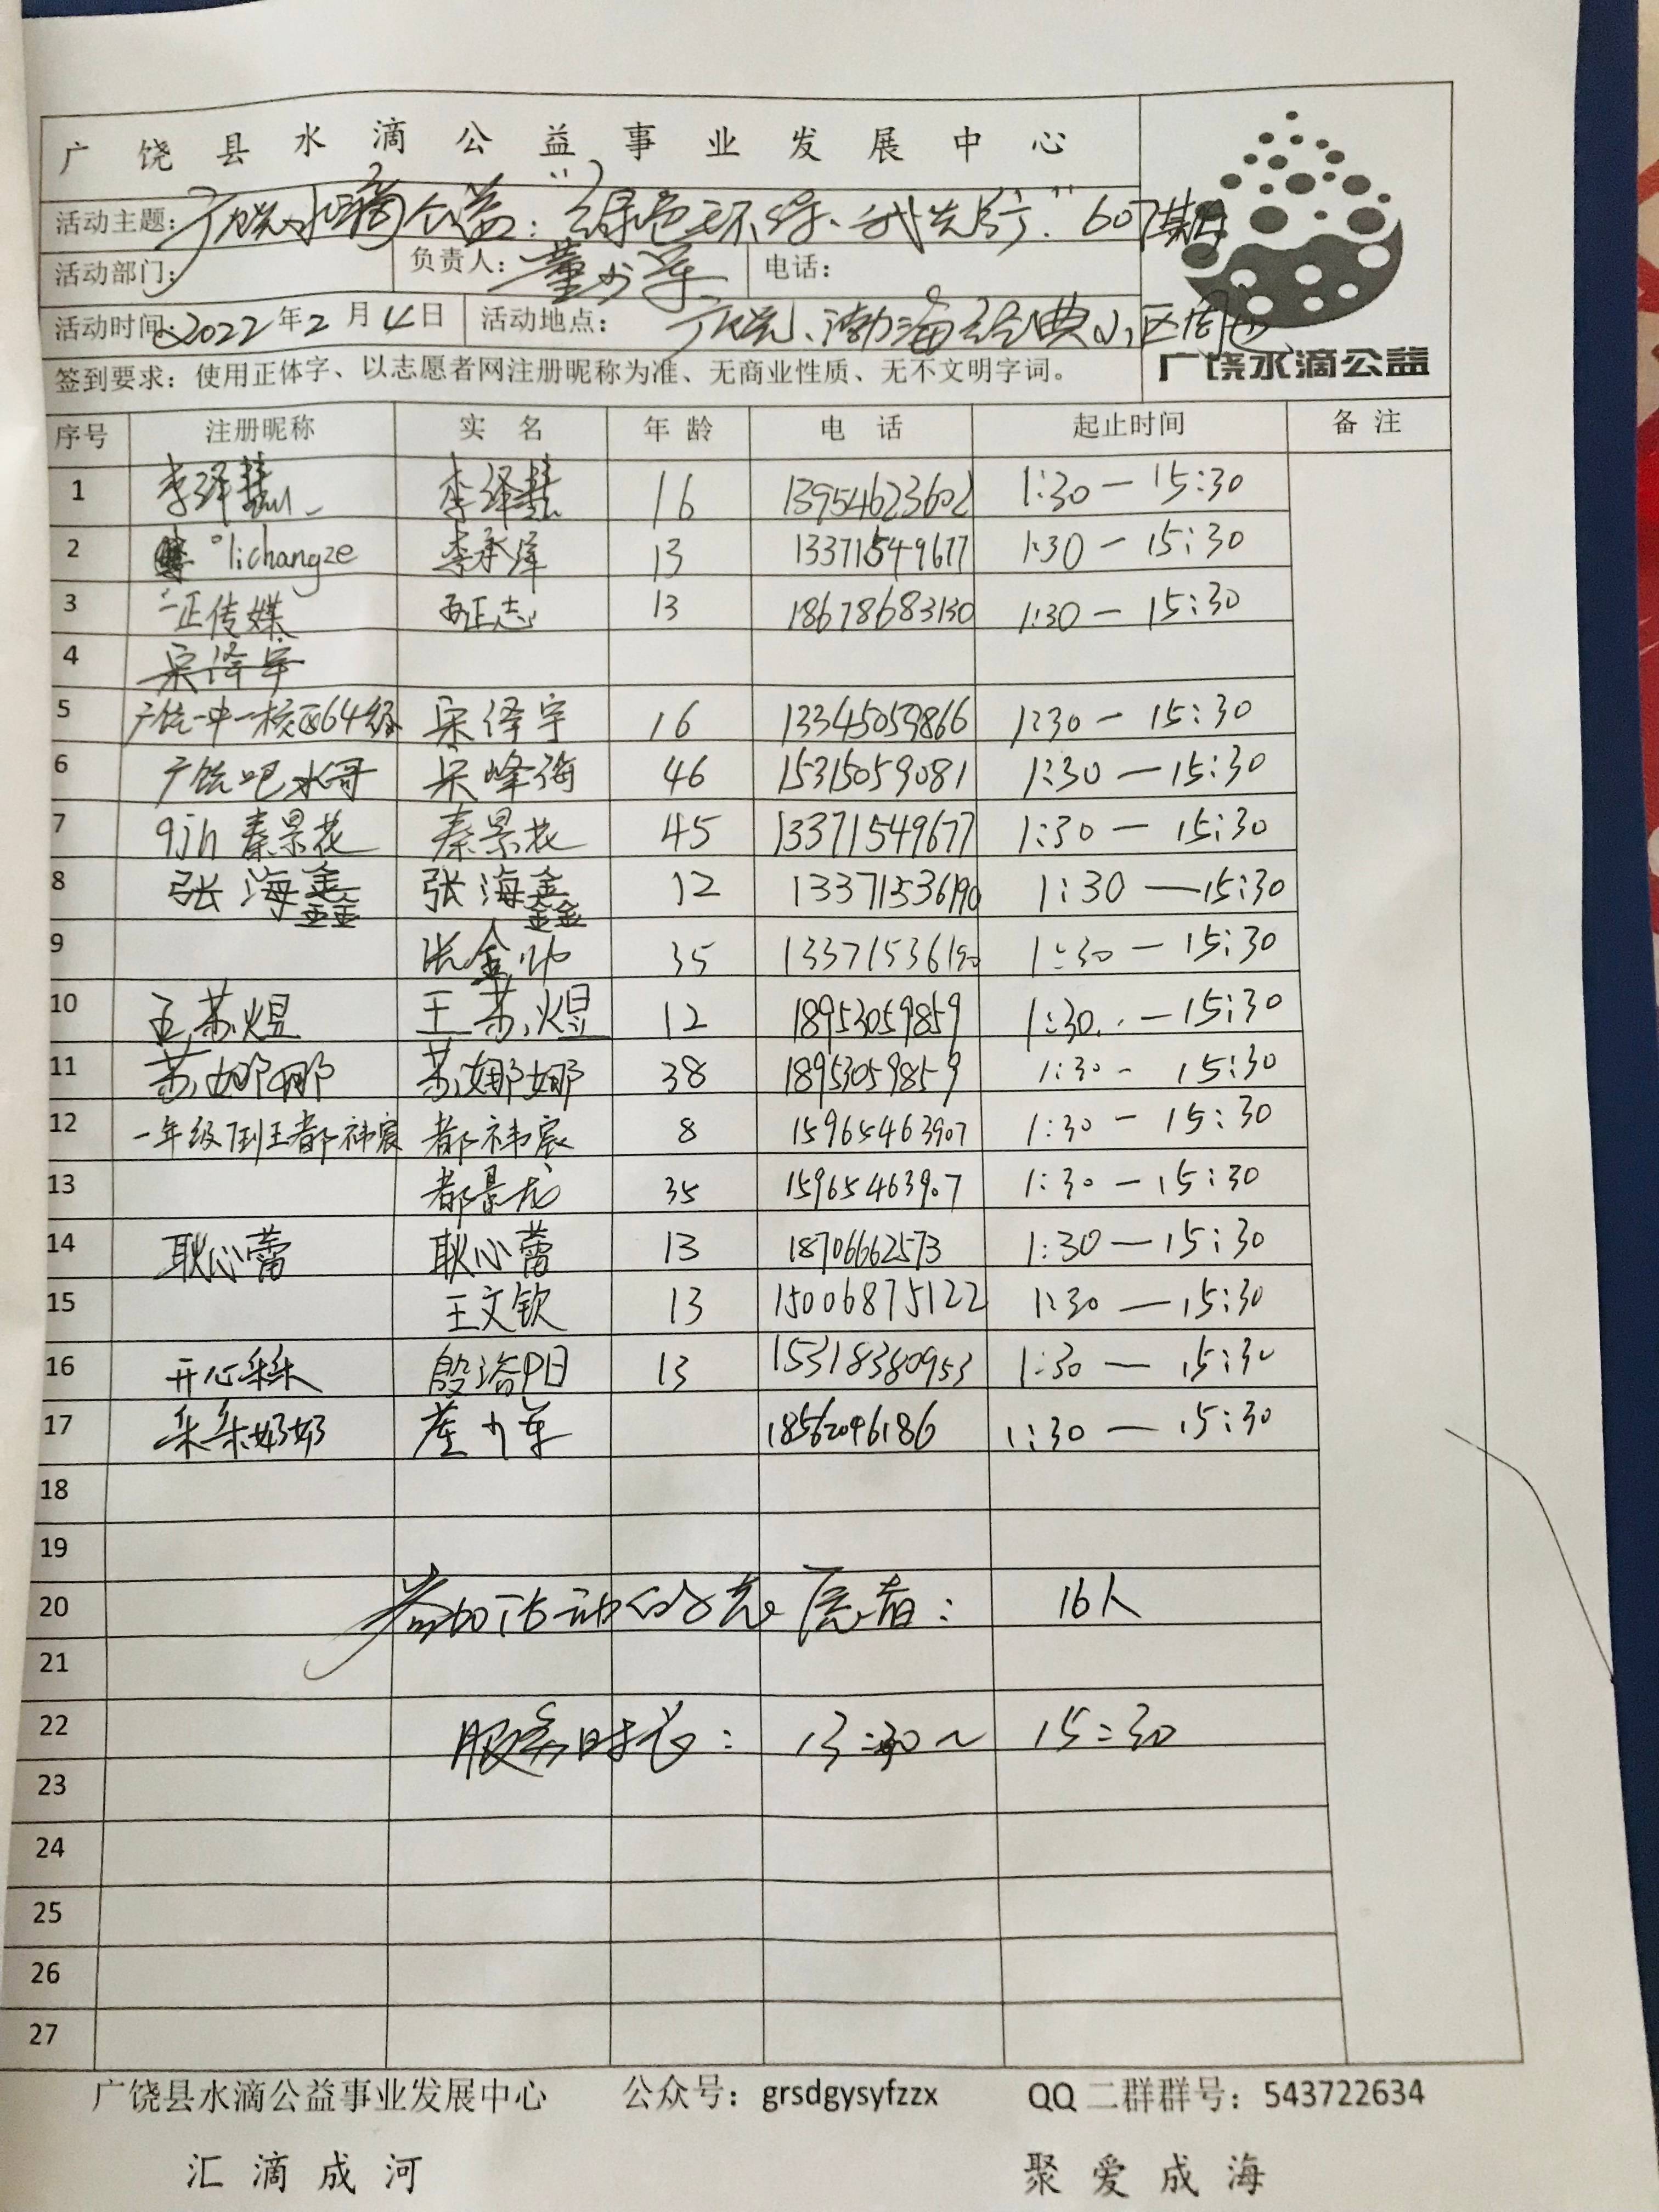 广饶县水滴公益事业发展中心
活动主题：广饶水滴公益："绿色环保、我先行"607期
活动部门： 负责人：董少军 电话：
活动时间：2022年2月4日 活动地点：广饶、渤海经典小区周边
广饶水滴公益
签到要求：使用正体字、以志愿者网注册昵称为准、无商业性质、无不文明字词。
序号 注册昵称 实名 年龄 电话 起止时间 备注
1 李泽慧 李泽慧 16 13954623602 1:30—15:30
2 lichangze 李承泽 13 13371549677 1:30—15:30
3 一正传媒 13 18678683130 1:30—15:30
4 宋泽宇
5 广饶一中一校区64级 宋泽宇 16 13345059866 1:30—15:30
6 广饶吧水哥 宋峰海 46 15315059081 1:30—15:30
7 qjh秦景花 秦景花 45 13371549677 1:30—15:30
8 张海鑫 张海鑫 12 13371536190 1:30—15:30
9 张金帅 35 13371536190 1:30—15:30
10 王苏煜 王苏煜 12 18953059859 1:30—15:30
11 苏娜娜 苏娜娜 38 18953059859 1:30-15:30
12 一年级 都祎宸 都祎宸 8 15965463907 1:30-15:30
13 都景龙 35 15965463907 1:30—15:30
14 耿心蕾 耿心蕾 13 18706662573 1:30—15:30
15 王文钦 13 15006875122 1:30—15:30
16 开心采采 13 15318380953 1:30—15:30
17 采采奶奶 董少军 18562096186 1:30—15:30
18
19
20 参加活动的志愿者： 16人
21
22 服务时长： 13:30～15:30
23
24
25
26
27
广饶县水滴公益事业发展中心 公众号：grsdgysyfzzx QQ二群群号：543722634
汇滴成河 聚爱成海